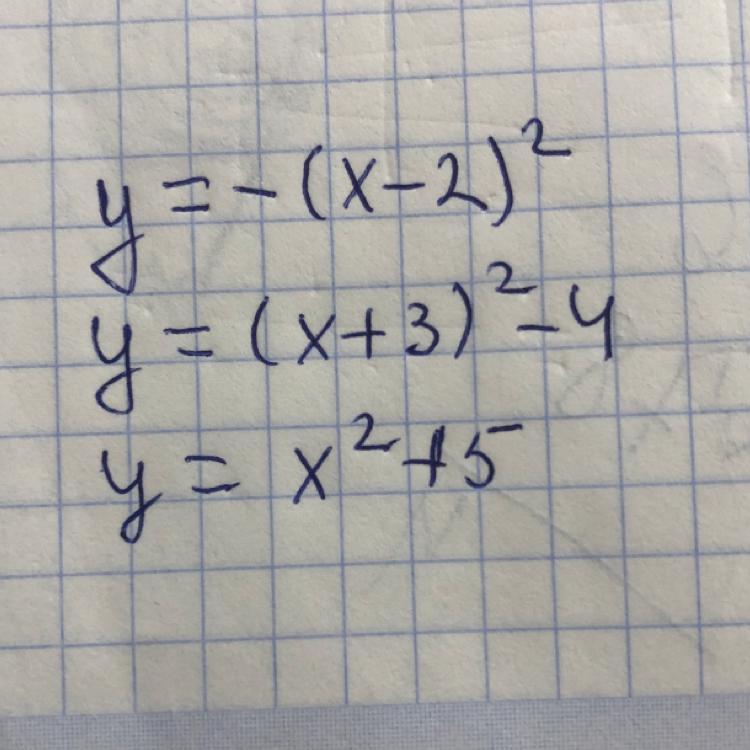 y = -(x-2)²
y = (x+3)²-4
y = x²+5